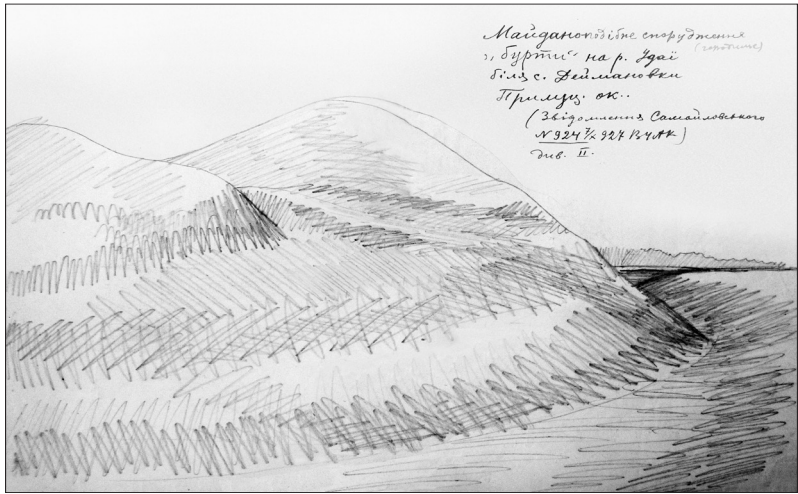 Майданоподібне спорудження
(городище)
„бурти" на р. Удаї
біля с. Деймановки
Прилуц. ок..
(Звідомлення Самойловського
N 924 7/X 927 ВУАК)
див. II.